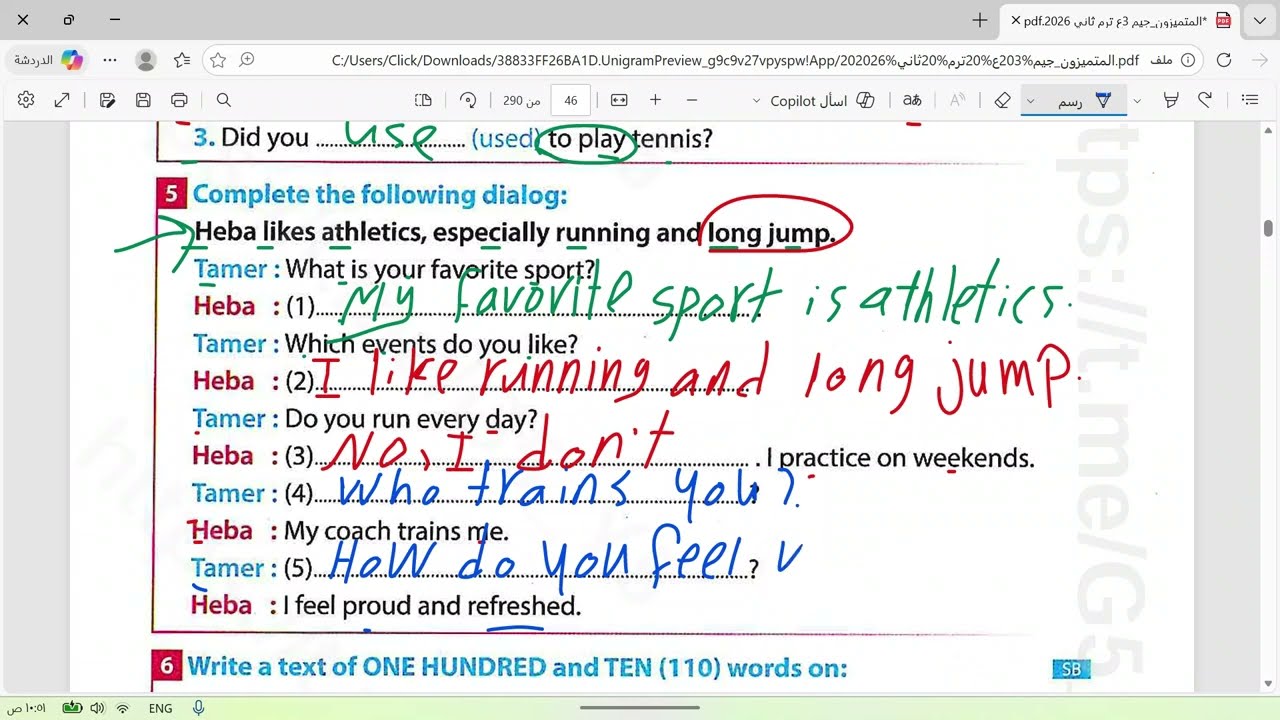 *المتميزون_جيم 3ع ترم ثاني 2026.pdf
الدردشة
C:/Users/Click/Downloads/38833FF26BA1D.UnigramPreview_g9c9v27vpyspw!App/202026%المتميزون_جيم%203ع%20ترم%20ثاني.pdf
ملف
46 من 290
اسأل Copilot
رسم
3. Did you use (used) to play tennis?
5 Complete the following dialog:
Heba likes athletics, especially running and long jump.
Tamer : What is your favorite sport?
Heba : (1) My favorite sport is athletics.
Tamer : Which events do you like?
Heba : (2) I like running and long jump.
Tamer : Do you run every day?
Heba : (3) No, I don't. I practice on weekends.
Tamer : (4) Who trains you?
Heba : My coach trains me.
Tamer : (5) How do you feel ?
Heba : I feel proud and refreshed.
6 Write a text of ONE HUNDRED and TEN (110) words on:
SB
ttps://t.me/G5
ENG
١٠:٥١ ص